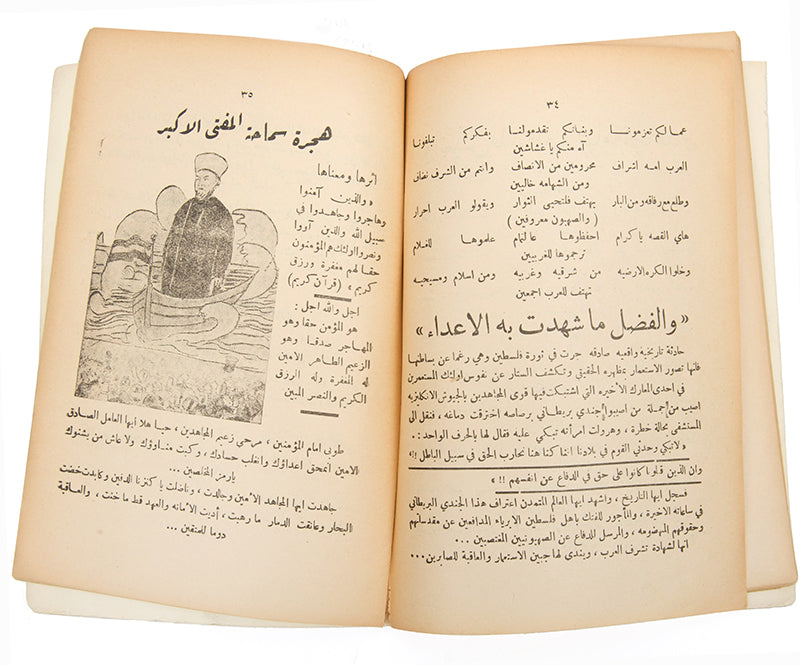 ٣٤
عمالكم تعزمونا وبناتكم نقدمولنا بفكركم تبلفونا
آه منكم يا غشاشين
العرب امه اشراف محرومين من الانصاف وانتم من الشرف نضاف
ومن الشهامه خاليين
وطلع مع رفاقه ومن البار يهتف فلتحيى الثوار ويقولو العرب احرار
( والصهيون معروفين )
هاي القصه يا كرام احفظوها عالتمام علموها للغلام
ترجموها للغربيين
وخلوا الكره الارضيه من شرقيه وغربيه ومن اسلام ومسيحيه
تهتف للعرب اجمعين
«والفضل ما شهدت به الاعداء»
حادثة تاريخية واقعيه صادقه جرت في ثورة فلسطين وهي رغما عن بساطتها
فانها تصور الاستعمار بمظهره الحقيقي وتكشف الستار عن نفوس اولئك المستعمرين
في احدى المعارك الأخيره التي اشتبكت فيها قوى المجاهدين بالجيوش الانكليزيه
اصيب من جملة من اصيبوا جندي بريطاني برصاصه اخترقت دماغه ، فنقل الى
المستشفى بحالة خطرة ، وهرولت امرأته تبكي عليه فقال لها بالحرف الواحد :
«لا تبكي وحدتي القوم في بلادنا اننا كنا هنا نحارب الحق في سبيل الباطل !!»
وان الذين قاوموا كانوا على حق في الدفاع عن انفسهم !! »
فسجل ايها التاريخ ، واشهد ايها العالم المتمدن اعتراف هذا الجندي البريطاني
في ساعاته الاخيرة ، والمأجور للفتك باهل فلسطين الابرياء المدافعين عن مقدساتهم
وحقوقهم المهضومه ، والمرسل للدفاع عن الصهيونيين المغتصبين ...
انها لشهادة تشرف العرب ، ويندى لها جبين الاستعمار والعاقبة للصابرين ...
٣٥
هجرة سماحة المفتى الاكبر
اثرها ومعناها
« والذين آمنوا
وهاجروا وجاهدوا في
سبيل الله والذين آووا
ونصروا اولئك هم المؤمنون
حقا لهم مغفرة ورزق
كريم » (قرآن كريم)
اجل والله اجل :
هو المؤمن حقا وهو
المهاجر صدقا وهو
الزعيم الطاهر الامين
له المغفرة وله الرزق
الكريم والنصر المبين
طوبى امام المؤمنين ، مرحى زعيم المجاهدين ، حيا هلا ايها العامل الصادق
الامين انمحق اعداؤك وانغلب حسادك ، وكبت مناوؤك ولا عاش من يشنوك
يا رمز المخلصين ...
جاهدت ايها المجاهد الأمين وجالدت ، وناضلت يا كنزنا الدفين وكابدت خضت
البحار وعانقت الدمار ما رهبت ، أديت الأمانه والعهد قط ما خنت ، والعاقبة
دوما للمتقين ...